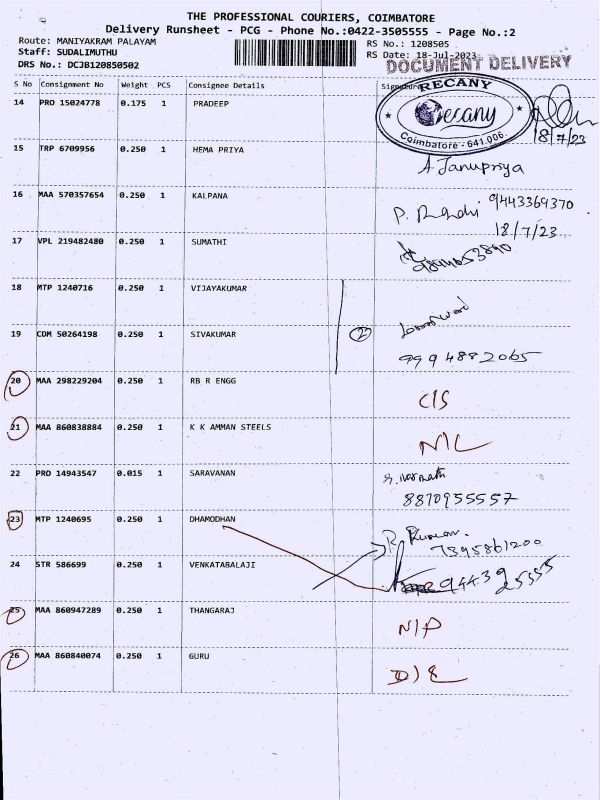 THE PROFESSIONAL COURIERS, COIMBATORE
Delivery Runsheet - PCG - Phone No.:0422-3505555 - Page No.:2
Route: MANIYAKRAM PALAYAM
RS No.: 1208505
Staff: SUDALIMUTHU
RS Date: 18-Jul-2023
DRS No.: DCJB120850502
DOCUMENT DELIVERY
S No Consignment No Weight PCS Consignee Details Signature
RECANY
Recany
Coimbatore - 641 006.
14 PRO 15024778 0.175 1 PRADEEP
18/7/23
15 TRP 6709956 0.250 1 HEMA PRIYA
A Janupriya
16 MAA 570357654 0.250 1 KALPANA
9443369370
18/7/23
17 VPL 219482480 0.250 1 SUMATHI
18 MTP 1240716 0.250 1 VIJAYAKUMAR
2
19 CDM 50264198 0.250 1 SIVAKUMAR
9994882065
20 MAA 298229204 0.250 1 RB R ENGG
C/S
21 MAA 860838884 0.250 1 K K AMMAN STEELS
N/L
22 PRO 14943547 0.015 1 SARAVANAN
8870955557
23 MTP 1240695 0.250 1 DHAMODHAN
R. Kumar.
7395861200
24 STR 586699 0.250 1 VENKATABALAJI
94439
25355
25 MAA 860947289 0.250 1 THANGARAJ
N/P
26 MAA 860840074 0.250 1 GURU
D/L